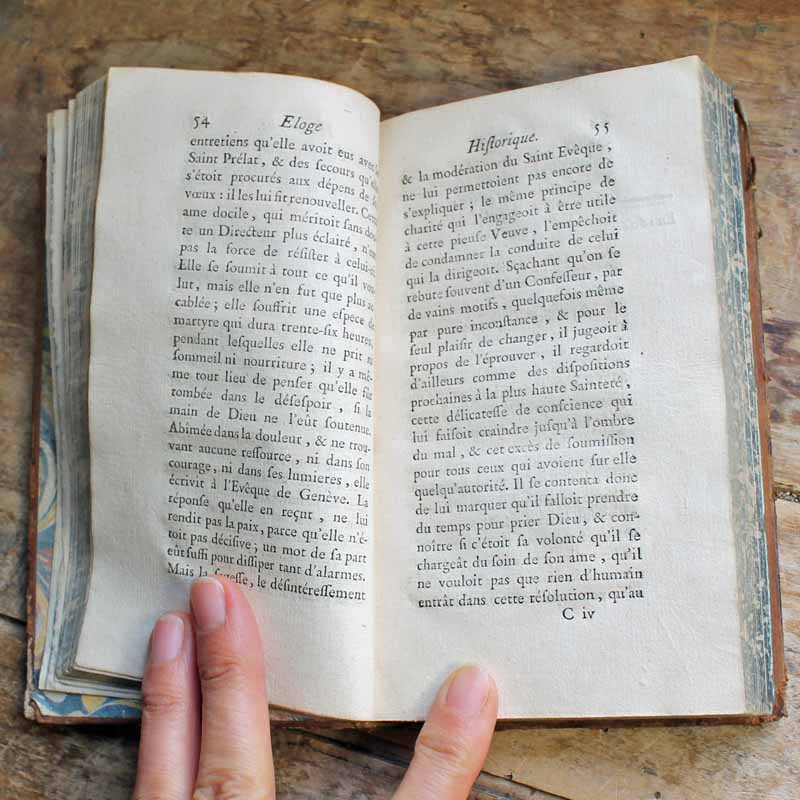 54 Eloge
entretiens qu'elle avoit eus avec
Saint Prélat, & des secours qu'
s'étoit procurés aux dépens de
vœux : il les lui fit renouveller. Cette
ame docile, qui méritoit sans dou-
te un Directeur plus éclairé, n'eut
pas la force de résister à celui-
Elle se soumit à tout ce qu'il vou-
lut, mais elle n'en fut que plus ac-
cablée ; elle souffrit une espece de
martyre qui dura trente-six heures,
pendant lesquelles elle ne prit ni
sommeil ni nourriture ; il y a mê-
me tout lieu de penser qu'elle fût
tombée dans le désespoir, si la
main de Dieu ne l'eût soutenue.
Abîmée dans la douleur, & ne trou-
vant aucune ressource, ni dans son
courage, ni dans ses lumieres, elle
écrivit à l'Evêque de Genève. La
réponse qu'elle en reçut, ne lui
rendit pas la paix, parce qu'elle n'é-
toit pas décisive ; un mot de sa part
eût suffi pour dissiper tant d'alarmes.
Mais la sagesse, le désintéressement
Historique. 55
& la modération du Saint Evêque,
ne lui permettoient pas encore de
s'expliquer ; le même principe de
charité qui l'engageoit à être utile
à cette pieuse Veuve, l'empêchoit
de condamner la conduite de celui
qui la dirigeoit. Sçachant qu'on se
rebute souvent d'un Confesseur, par
de vains motifs, quelquefois même
par pure inconstance, & pour le
seul plaisir de changer, il jugeoit à
propos de l'éprouver, il regardoit
d'ailleurs comme des dispositions
prochaines à la plus haute Sainteté,
cette délicatesse de conscience qui
lui faisoit craindre jusqu'à l'ombre
du mal, & cet excès de soumission
pour tous ceux qui avoient sur elle
quelqu'autorité. Il se contenta donc
de lui marquer qu'il falloit prendre
du temps pour prier Dieu, & con-
noître si c'étoit sa volonté qu'il se
chargeât du soin de son ame, qu'il
ne vouloit pas que rien d'humain
entrât dans cette résolution, qu'au
C iv